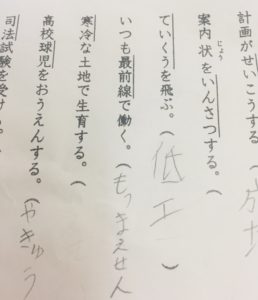 計画がせいこうする
案内状をいんさつする。(
じょう
ていくうを飛ぶ。(低工)
いつも最前線で働く。(もつまえせん
寒冷な土地で生育する。(
高校球児をおうえんする。(やきゅう
司法試験を受ける。